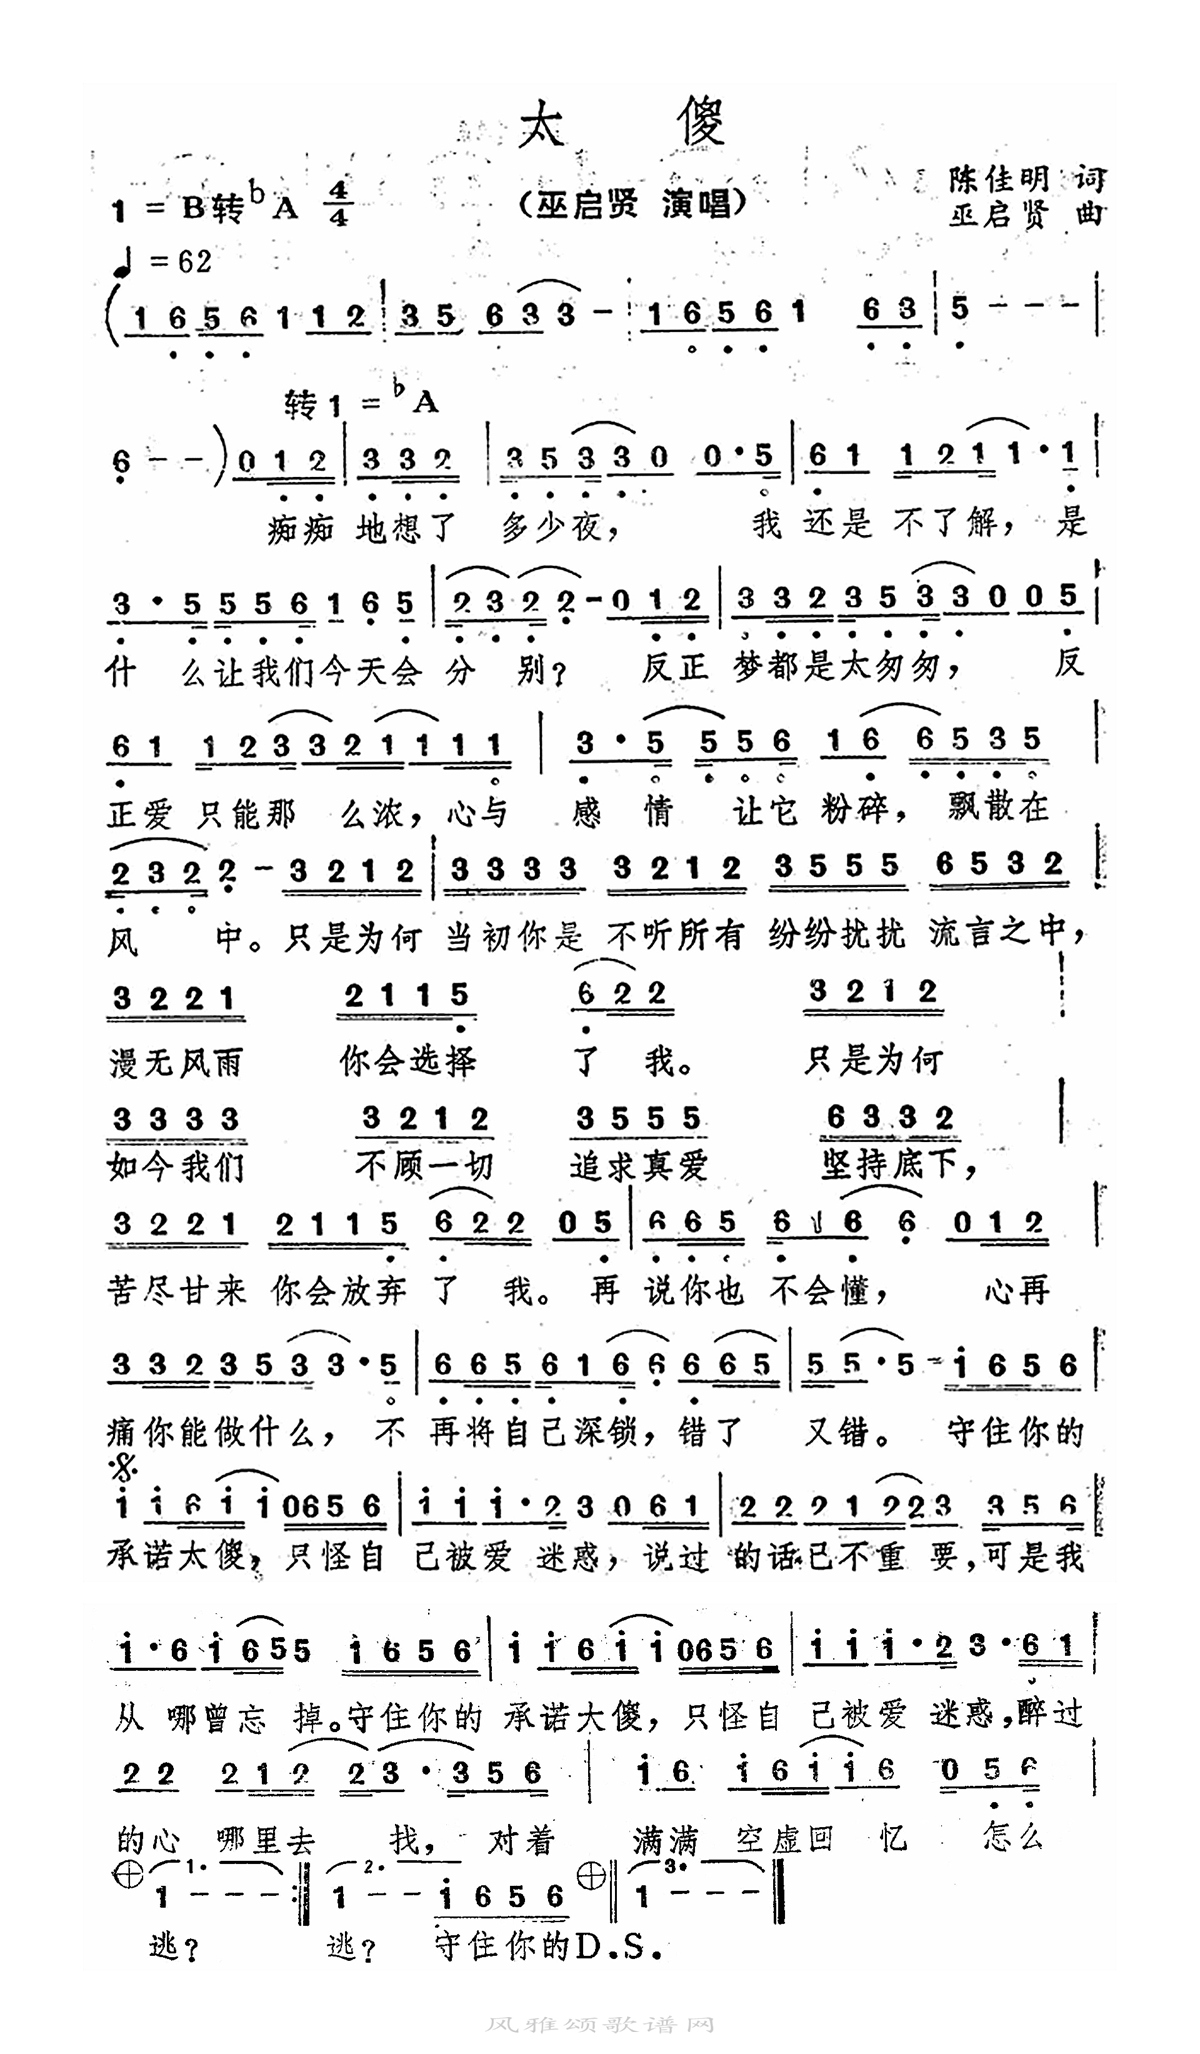 太 傻
1 = B转bA 4/4 （巫启贤 演唱） 陈佳明 词
巫启贤 曲
♩ = 62
( 1 6 5 6 1 1 2 | 3 5 6 3 3 - | 1 6 5 6 1 6 3 | 5 - - - |
转1 = bA
6 - - ) 0 1 2 | 3 3 2 | 3 5 3 3 0 0 · 5 | 6 1 1 2 1 1 · 1 |
痴痴 地想了 多少夜， 我 还是 不了解， 是
3 · 5 5 5 6 1 6 5 | 2 3 2 2 - 0 1 2 | 3 3 2 3 5 3 3 0 0 5 |
什 么让我们今天会 分 别？ 反正 梦都是太匆匆， 反
6 1 1 2 3 3 2 1 1 1 1 | 3 · 5 5 5 6 1 6 6 5 3 5 |
正爱 只能那 么浓，心与 感 情 让它 粉碎， 飘散在
2 3 2 2 - 3 2 1 2 | 3 3 3 3 3 2 1 2 3 5 5 5 6 5 3 2 |
风 中。只是为何 当初你是 不听所有 纷纷扰扰 流言之中，
3 2 2 1 2 1 1 5 6 2 2 3 2 1 2 |
漫无风雨 你会选择 了 我。 只是为何
3 3 3 3 3 2 1 2 3 5 5 5 6 3 3 2 |
如今我们 不顾一切 追求真爱 坚持底下，
3 2 2 1 2 1 1 5 6 2 2 0 5 | 6 6 5 6 1 6 6 0 1 2 |
苦尽甘来 你会放弃 了 我。 再 说你也 不会懂， 心再
3 3 2 3 5 3 3 · 5 | 6 6 5 6 1 6 6 6 6 5 | 5 5 · 5 - i 6 5 6 |
痛你能做什么， 不 再将自己深锁，错了 又错。 守住你的
𝄋
i i 6 i i 0 6 5 6 | i i i · 2 3 0 6 1 | 2 2 2 1 2 2 3 3 5 6 |
承诺太傻，只怪自 己被爱 迷惑，说过 的话已不重 要，可是我
i · 6 i 6 5 5 i 6 5 6 | i i 6 i i 0 6 5 6 | i i i · 2 3 · 6 1 |
从 哪曾忘 掉。守住你的 承诺太傻，只怪自 己被爱 迷惑，醉过
2 2 2 1 2 2 3 · 3 5 6 | i 6 i 6 i i 6 0 5 6 |
的心 哪里去 找， 对着 满满 空虚回 忆 怎么
⊕ 1. 1 - - - :‖ 2. 1 - - i 6 5 6 ⊕ ‖ 3. 1 - - - ‖
逃？ 逃？ 守住你的D.S.
风雅颂歌谱网